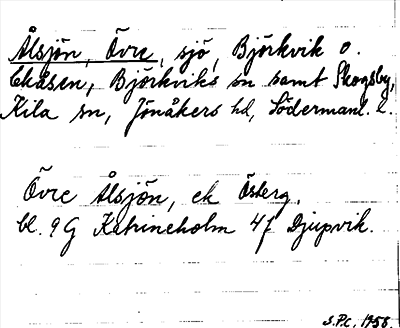 Ålsjön, Övre, sjö, Björkvik o.
Ekåsen, Björkviks sn samt Skogsby,
Kila sn, Jönåkers hd, Södermanl. l.
Övre Ålsjön, ek Österg.
bl. 9 G Katrineholm 4f Djupvik.
S.P.C. 1958.